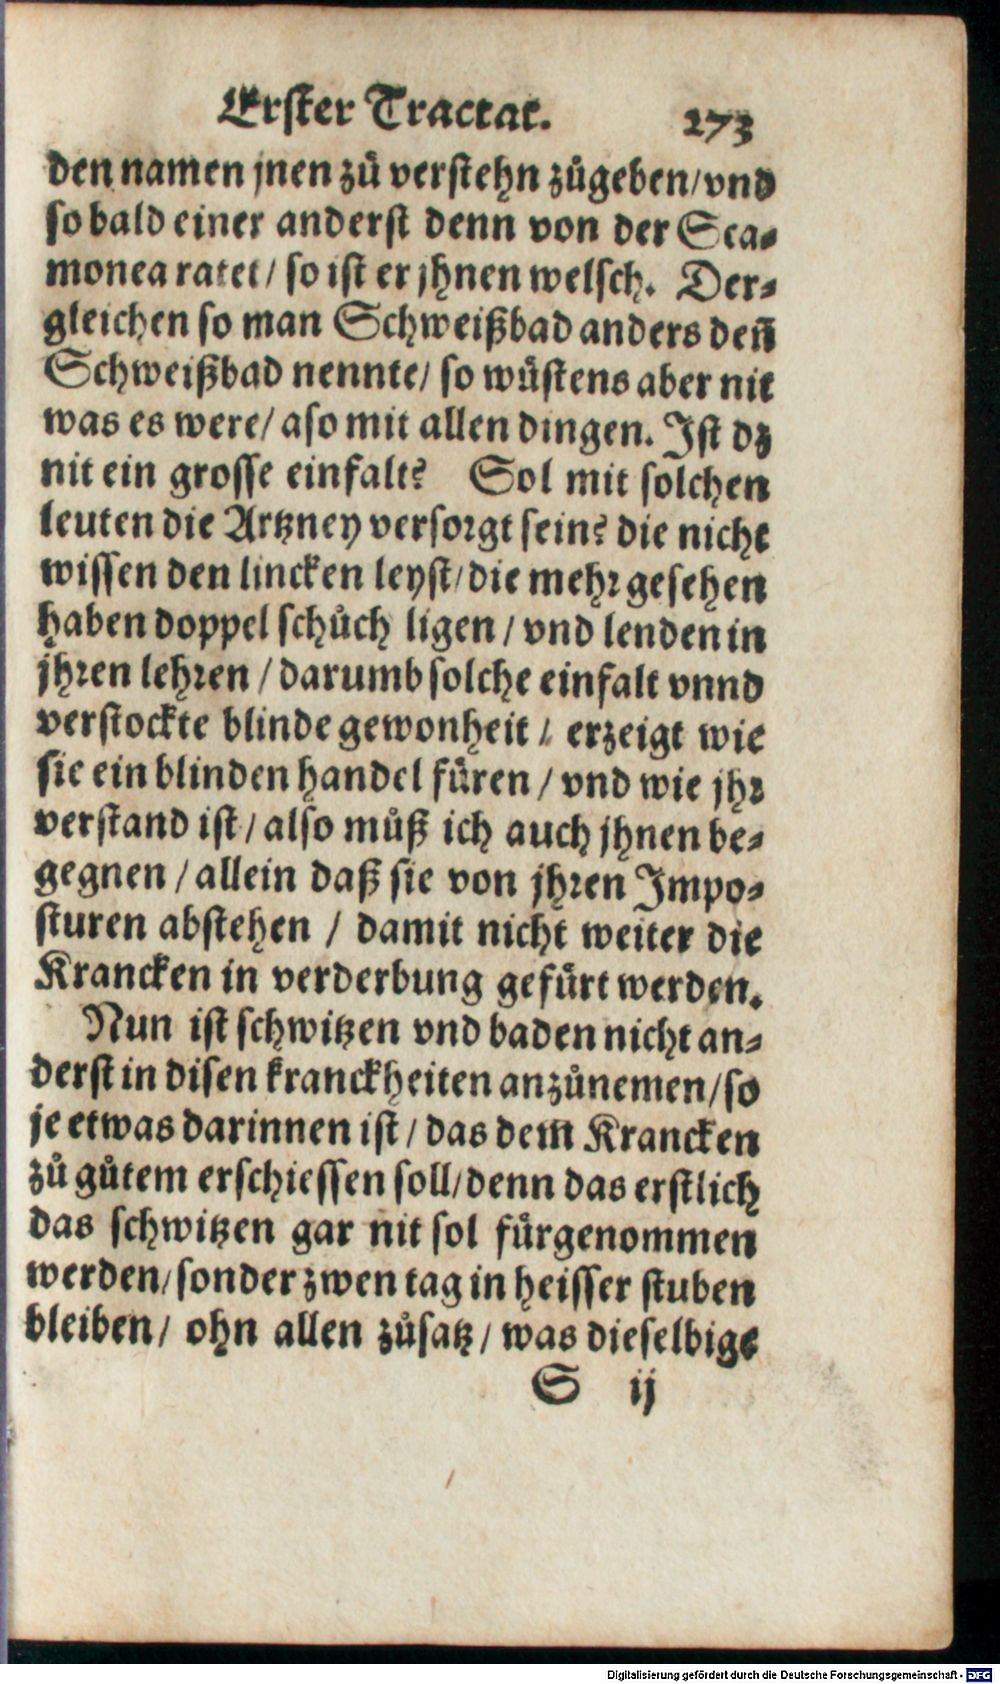 Erster Tractat. 273
den namen jnen zů verstehn zůgeben/vnd
so bald einer anderst denn von der Sca⸗
monea ratet/ so ist er jhnen welsch. Der⸗
gleichen so man Schweißbad anders deñ
Schweißbad nennte/ so wüstens aber nit
was es were/ aso mit allen dingen. Ist dz
nit ein grosse einfalt? Sol mit solchen
leuten die Artzney versorgt sein? die nicht
wissen den lincken leyst/die mehr gesehen
haben doppel schůch ligen/ vnd lenden in
jhren lehren/ darumb solche einfalt vnnd
verstockte blinde gewonheit/ erzeigt wie
sie ein blinden handel füren/ vnd wie jhr
verstand ist/ also můß ich auch jhnen be⸗
gegnen/ allein daß sie von jhren Impo⸗
sturen abstehen/ damit nicht weiter die
Krancken in verderbung gefürt werden.
Nun ist schwitzen vnd baden nicht an⸗
derst in disen kranckheiten anzůnemen/so
je etwas darinnen ist/ das dem Krancken
zů gůtem erschiessen soll/denn das erstlich
das schwitzen gar nit sol fürgenommen
werden/sonder zwen tag in heisser stuben
bleiben/ ohn allen zůsatz/ was dieselbige
S ij
Digitalisierung gefördert durch die Deutsche Forschungsgemeinschaft - DFG